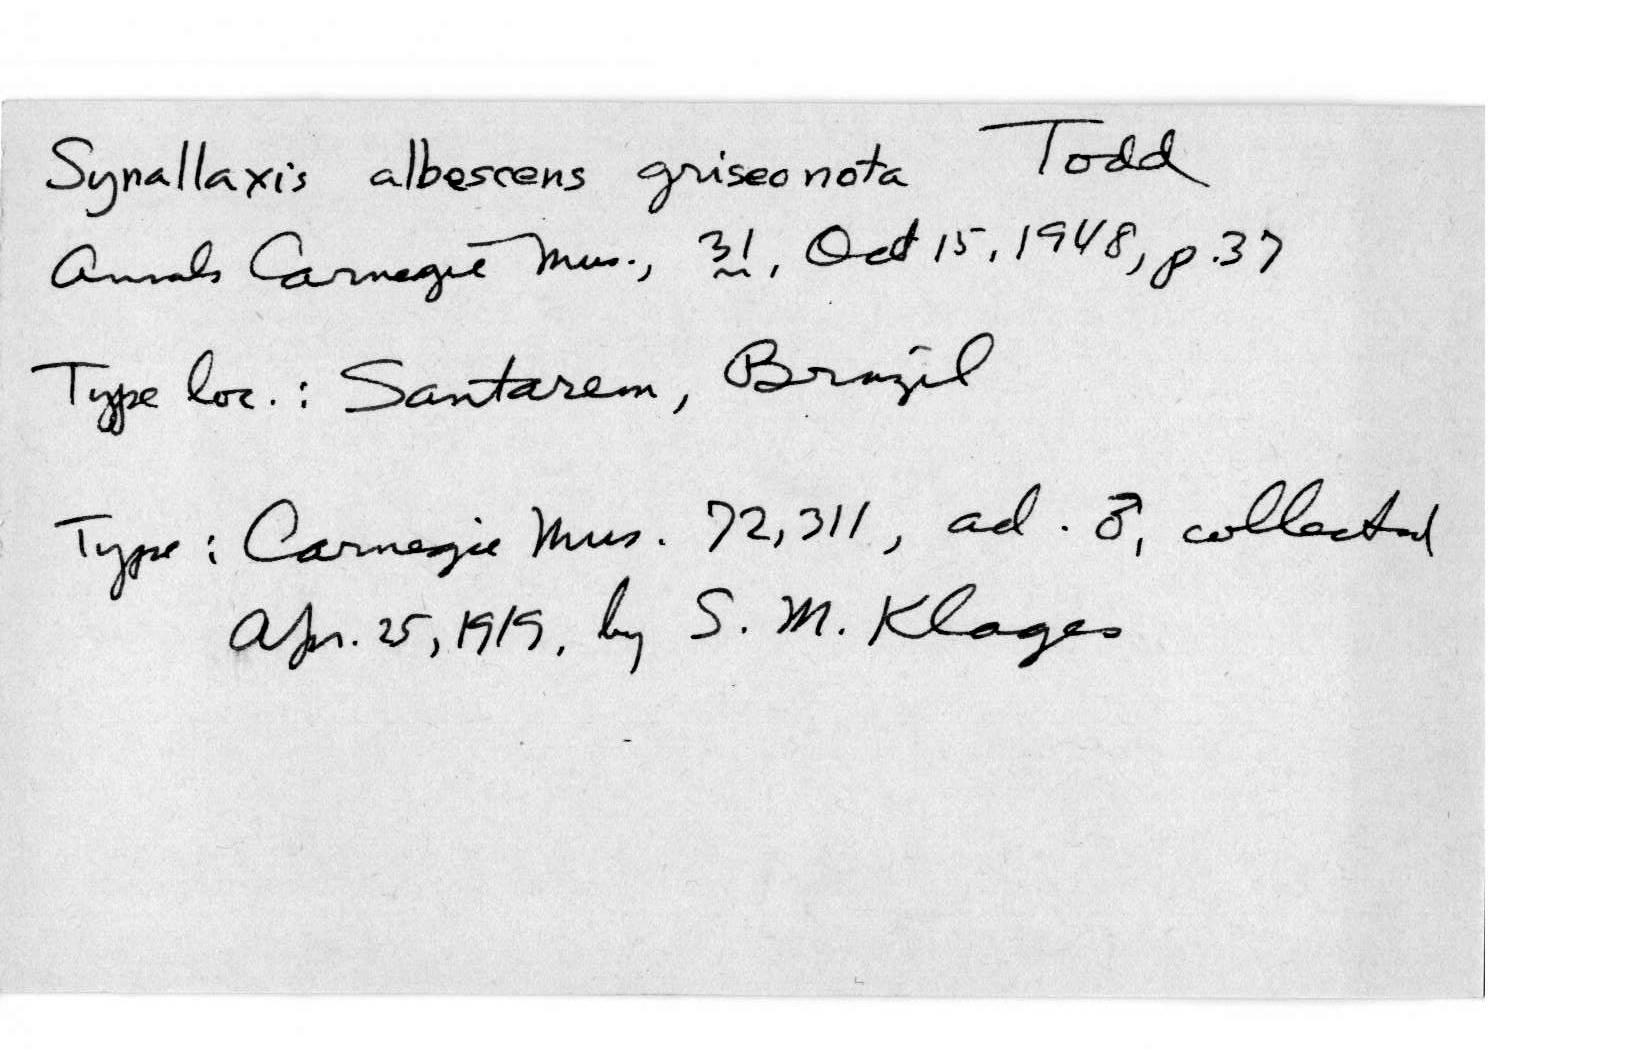 Synallaxis albescens griseonota Todd
Annals Carnegie Mus., 31, Oct 15, 1948, p.37
Type loc.: Santarem, Brazil
Type: Carnegie Mus. 72,311, ad. ♂, collected
Apr. 25, 1919, by S. M. Klages